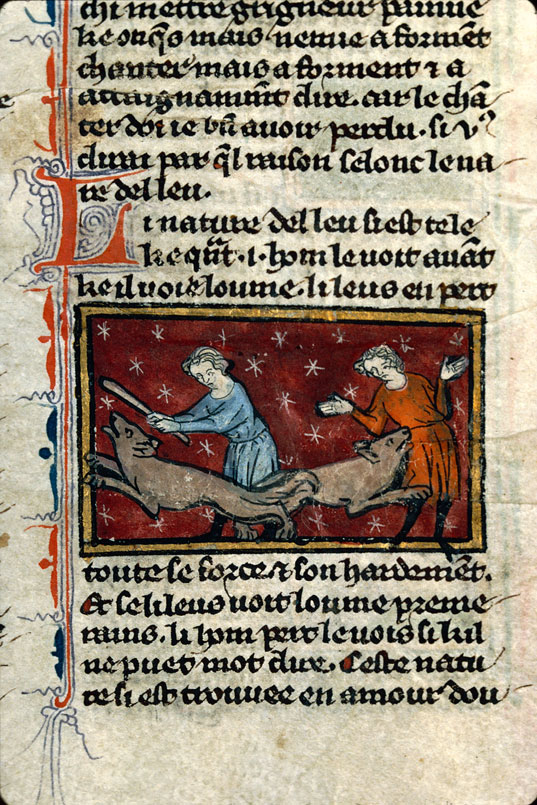 chi mettre grigneur painne
ke onq̃s mais nenue a forment
chanter mais a forment ⁊ a
ataignamm̃t dire. car le chã
ter doi ie bñ auoir perdu. si v⁹
dirai par q̃l raison selonc le na
tre del leu.
Li nature del leu si est tele
ke qãt .i. hom le voit auãt
ke il voie loume. li leus en pert
toute se force ⁊ son hardemẽt.
Et se li leus voit loume preme
rains. li hom pert le vois si kil
ne puet mot dire. Ceste natu
re si est trouuee en amour dou